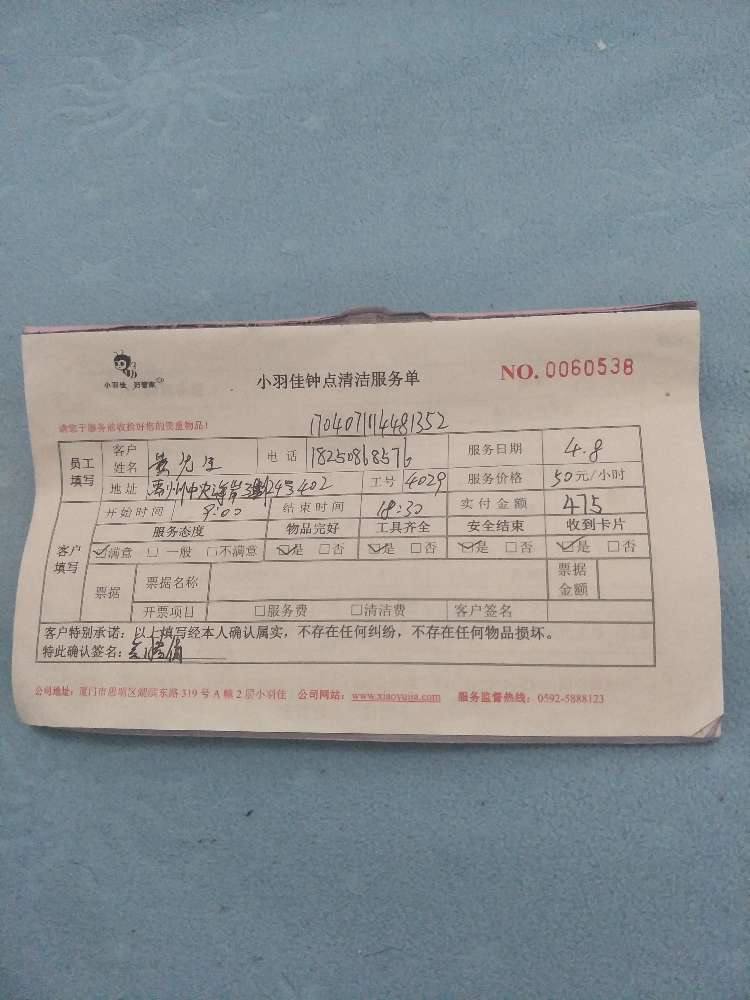 小羽佳 好管家
小羽佳钟点清洁服务单
NO. 0060538
请您于服务前收捡好您的贵重物品!
员工填写 客户姓名 黄先生 电话 18250868576 服务日期 4.8
地址 402 工号 4029 服务价格 50元/小时
开始时间 9:00 结束时间 18:30 实付金额 475
客户填写 服务态度 物品完好 工具齐全 安全结束 收到卡片
☑满意 □一般 □不满意 ☑是 □否 ☑是 □否 ☑是 □否 ☑是 □否
票据 票据名称 票据金额
开票项目 □服务费 □清洁费 客户签名
客户特别承诺:以上填写经本人确认属实,不存在任何纠纷,不存在任何物品损坏。
特此确认签名:
公司地址:厦门市思明区湖滨东路319号A幢2层小羽佳 公司网站:www.xiaoyujia.com 服务监督热线:0592-5888123